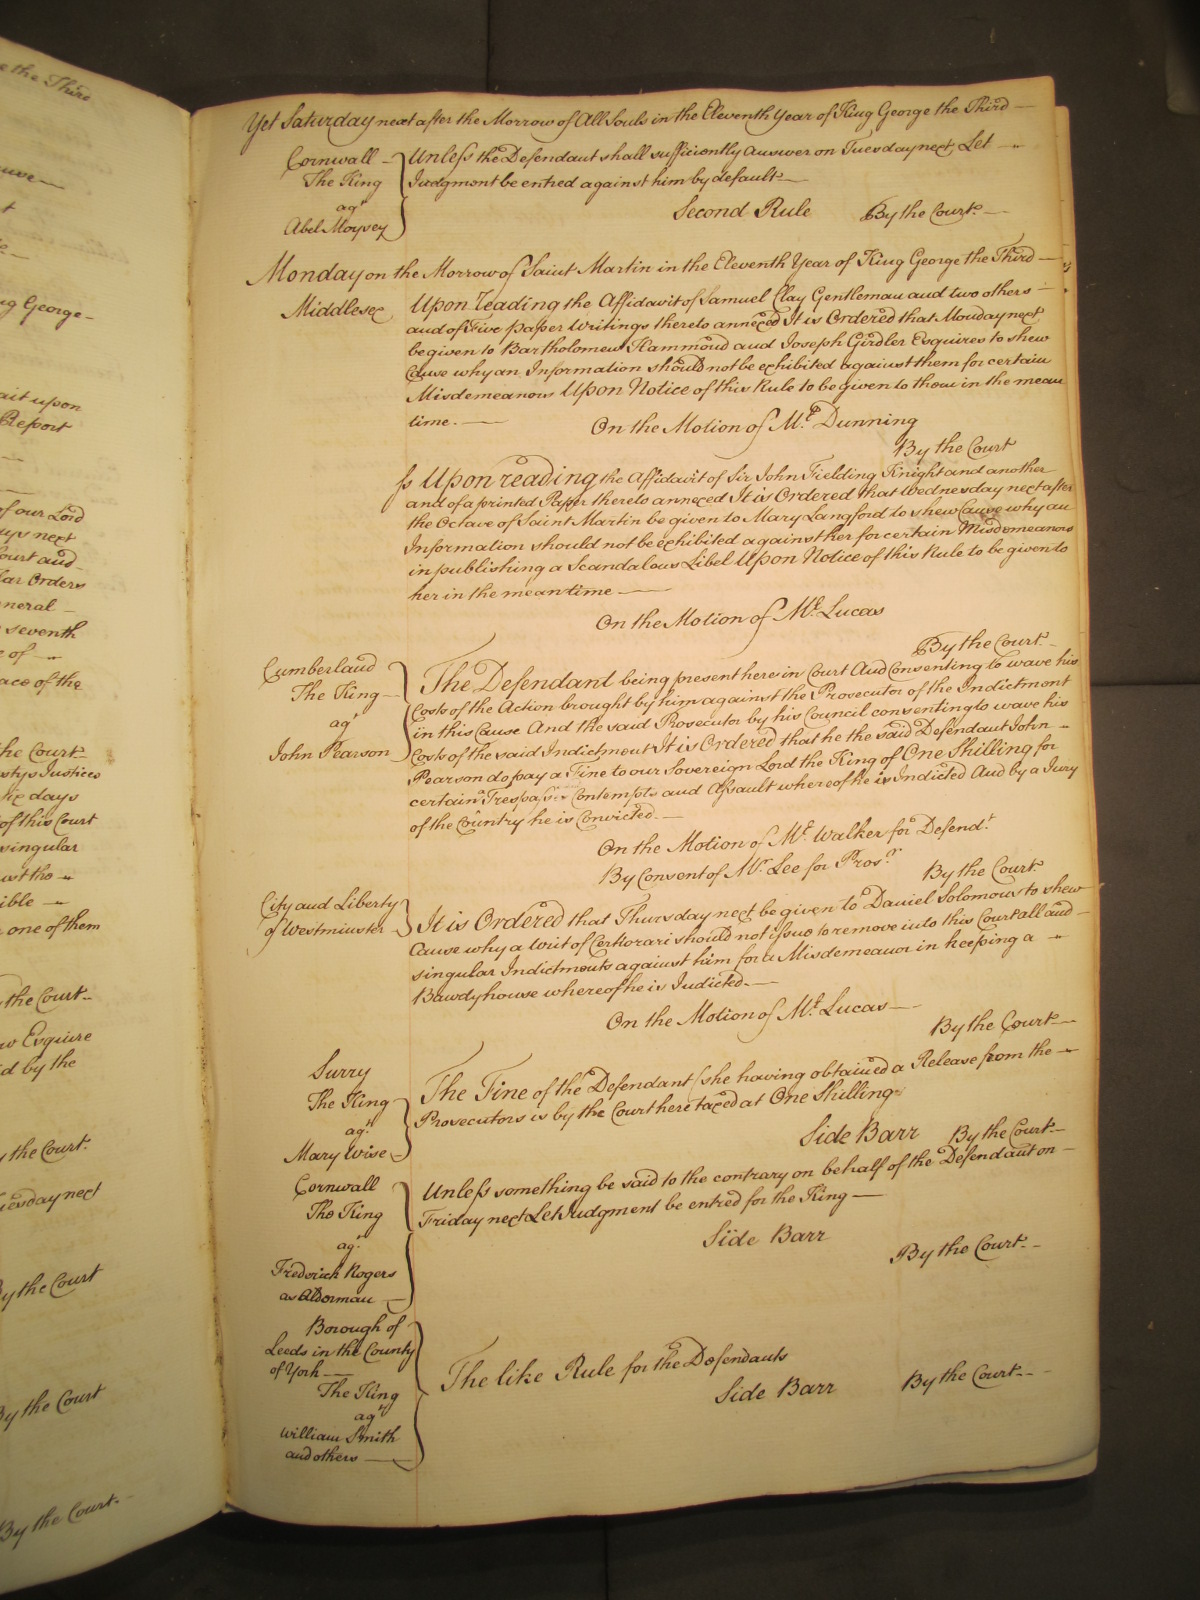 e the Third
ug George
ait upon
Report
of our Lord
days next
Court and
lar Orders
neral
seventh
e of
ace of the
the Court
estys Justices
Six days
of this Court
singular
ust the
ible
one of them
the Court
w Esquire
d by the
y the Court.
Tuesday next
By the Court
By the Court
By the Court.
Yet Saturday next after the Morrow of All Souls in the Eleventh Year of King George the Third
Cornwall
The King
agt
Abel Moyvey
Unless the Defendant shall sufficiently answer on Tuesday next Let
Judgment be entred against him by default
Second Rule By the Court.
Monday on the Morrow of Saint Martin in the Eleventh Year of King George the Third
Middlesex Upon reading the Affidavit of Samuel Clay Gentleman and two others
and of Five paper Writings thereto annexed It is Ordered that Monday next
be given to Bartholomew Hammond and Joseph Girdler Esquires to shew
Cause why an Information should not be exhibited against them for certain
Misdemeanors Upon Notice of this Rule to be given to them in the mean
time.
On the Motion of Mr. Dunning
By the Court
ss Upon reading the Affidavit of Sir John Fielding Knight and another
and of a printed Paper thereto annexed It is Ordered that Wednesday next after
the Octave of Saint Martin be given to Mary Langford to shew Cause why an
Information should not be exhibited against her for certain Misdemeanors
in publishing a Scandalous Libel Upon Notice of this Rule to be given to
her in the mean time
On the Motion of Mr. Lucas
By the Court.
Cumberland
The King
agt
John Pearson
The Defendant being present here in Court And Consenting to wave his
Costs of the Action brought by him against the Prosecutor of the Indictment
in this Cause And the said Prosecutor by his Council consenting to wave his
Costs of the said Indictment It is Ordered that he the said Defendant John
Pearson do pay a Fine to our Sovereign Lord the King of One Shilling for
certain Trespass Contempts and Assault whereof he is Indicted And by a Jury
of the Country he is Convicted.
On the Motion of Mr. Walker for Defendt.
By Consent of Mr. Lee for Prosr.
By the Court.
City and Liberty
of Westminster
It is Ordered that Thursday next be given to Daniel Solomons to shew
Cause why a Writ of Certiorari should not issue to remove into this Court all and
singular Indictments against him for a Misdemeanor in keeping a
Bawdyhouse whereof he is Indicted.
On the Motion of Mr. Lucas
By the Court
Surry
The King
agt.
Mary Wise
The Fine of the Defendant (she having obtained a Release from the
Prosecutors is by the Court here taxed at One Shilling
Side Barr By the Court.
Cornwall
The King
agt.
Frederick Rogers
as Alderman
Unless something be said to the contrary on behalf of the Defendant on
Friday next Let Judgment be entred for the King
Side Barr
By the Court.
Borough of
Leeds in the County
of York
The King
agt
William Smith
and others
The like Rule for the Defendants
Side Barr By the Court.